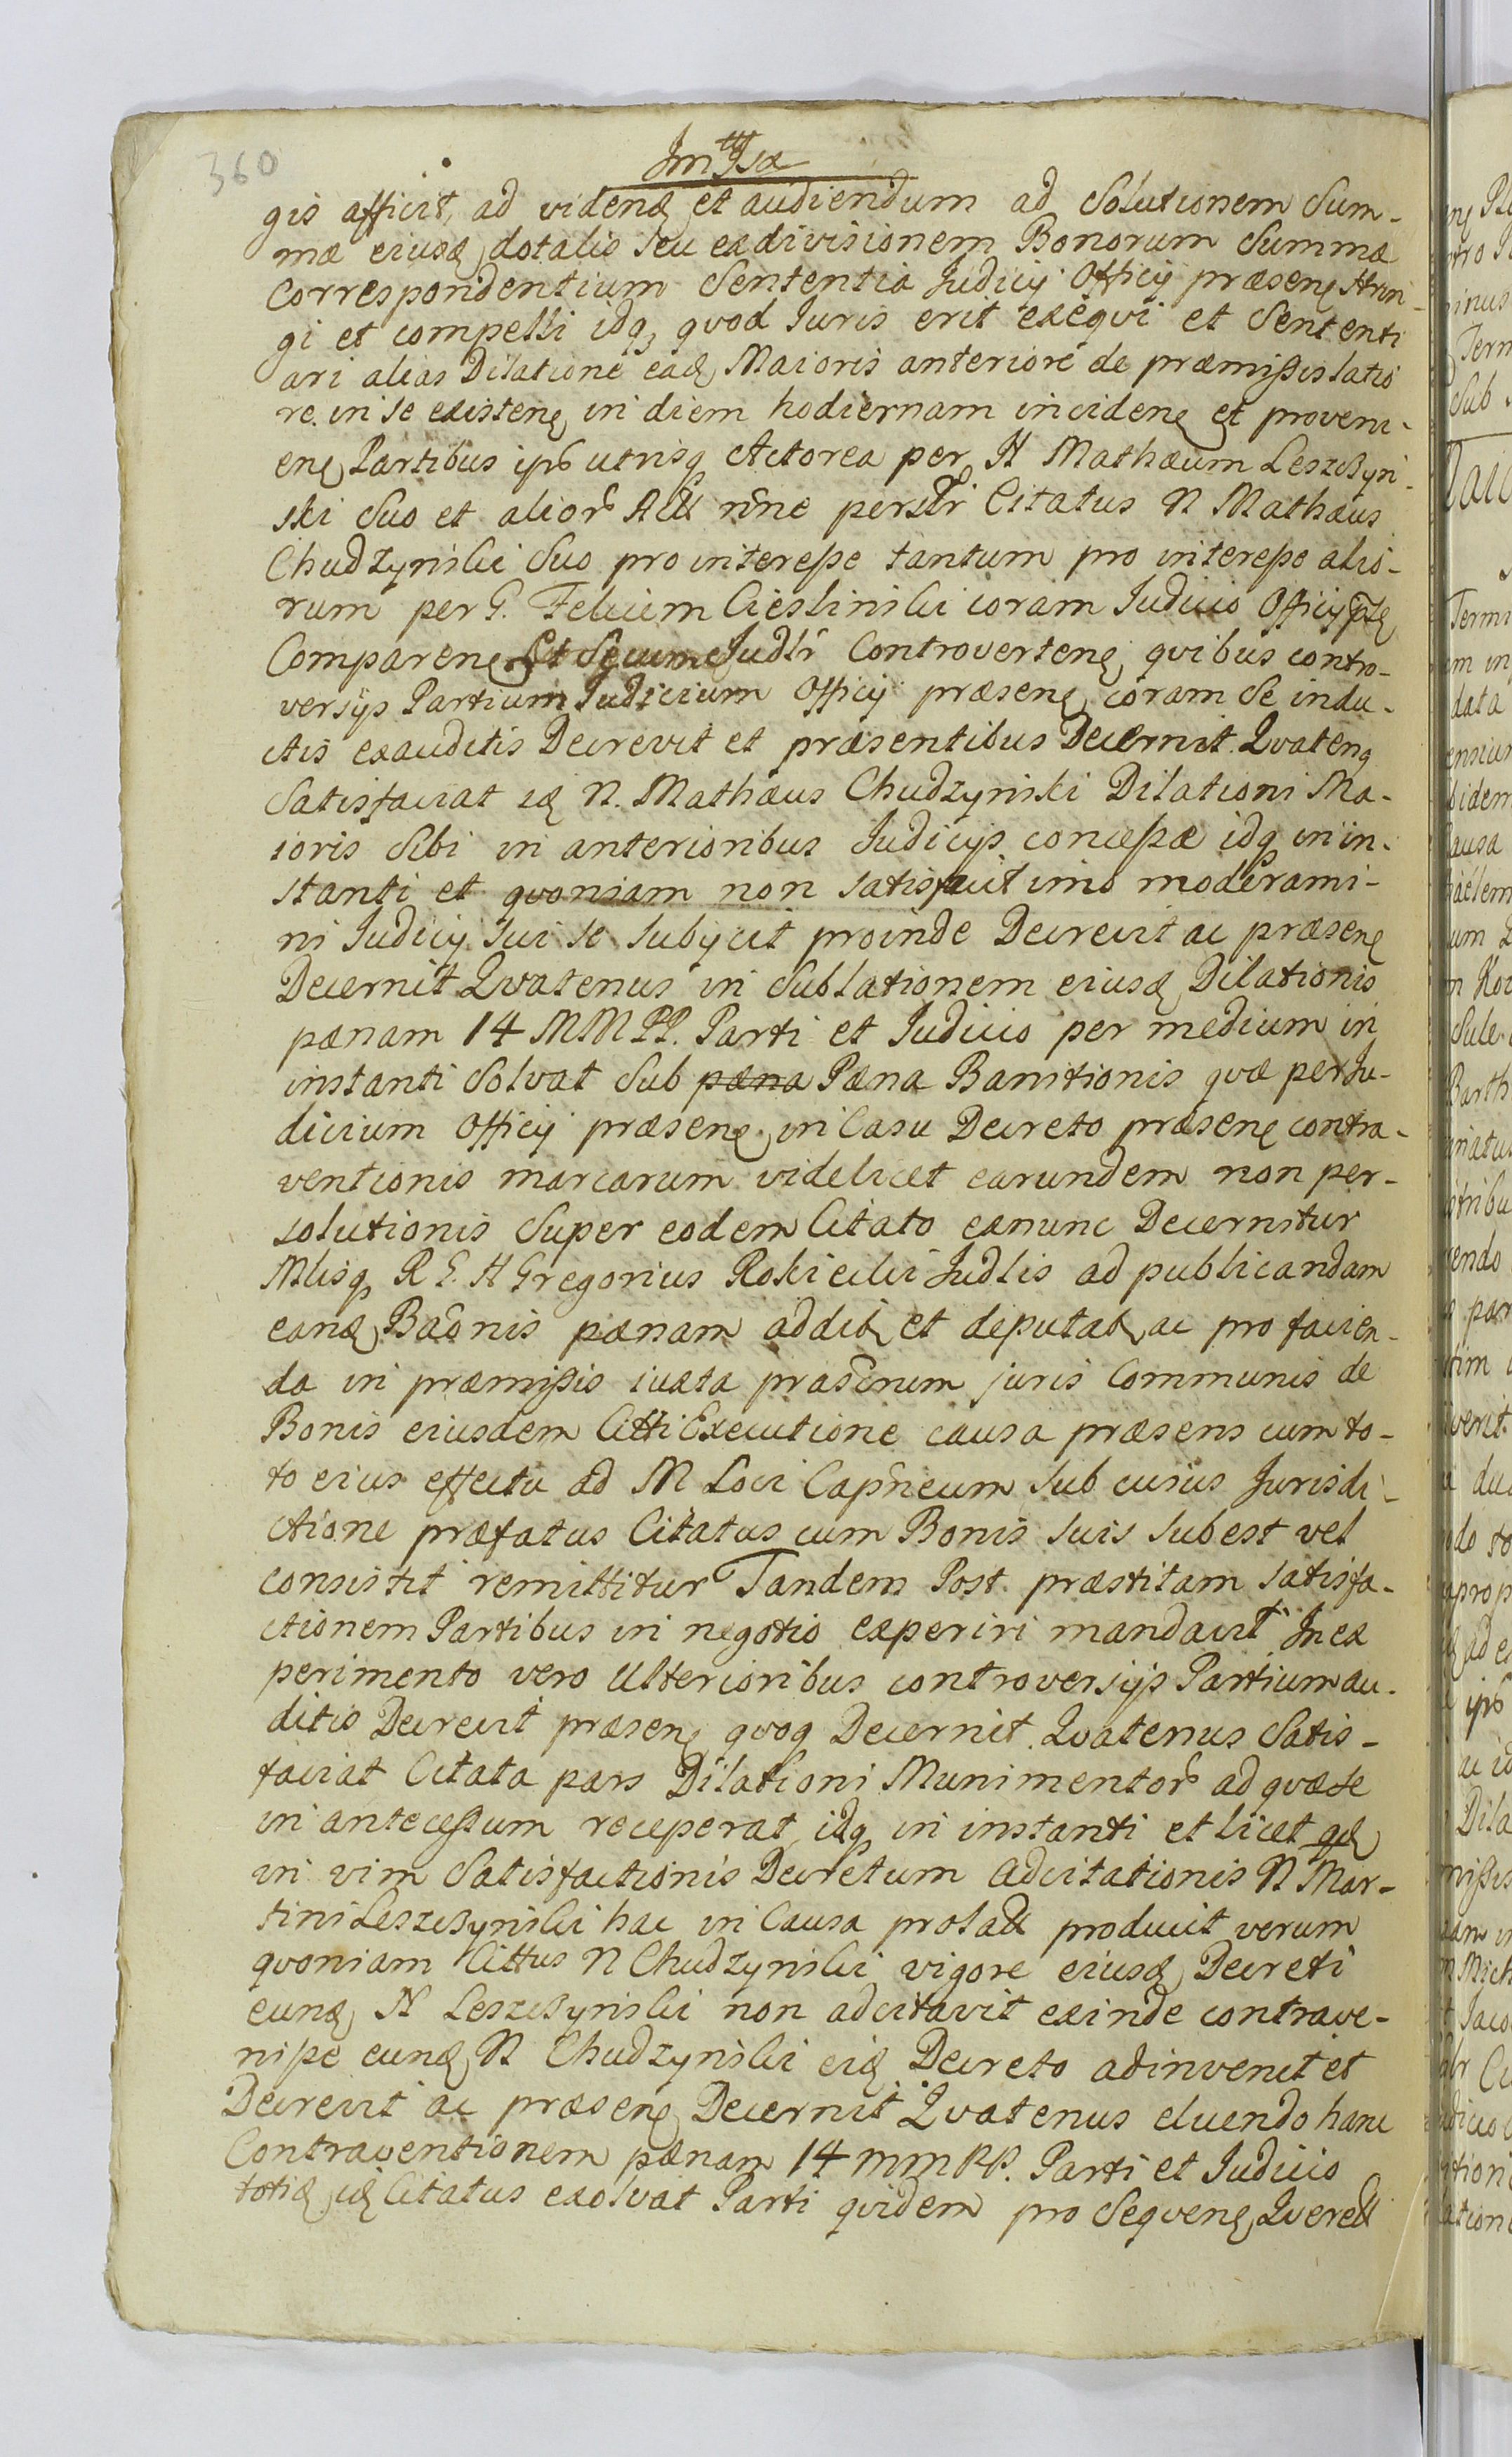 360
gis afficit, ad videnȩ et audiendum ad Solutionem Sum-
mæ eiusȩ dotalis seu exdivisionem Bonorum Summæ
Correspondentium Sententia Judicij Officij præsenȩ strin-
gi et compelli idq, quod Juris erit exeqvi et Sententi
ari alias Dilatione eaȩ Maioris anteriore de præmissis latio
re. in se existenȩ in diem hodiernam incidenȩ et proveni-
enȩ Partibus ips utrisq Actorea per H Mathæum Leszczyn-
ski Suo et alior Act nne persr Citatus N Mathæus
Chudzynski Suo pro interesse tantum pro interesse alio-
rum per G. Felicem Cieslinski coram Judicio Officij
Comparenȩ Et Secum Judlr Controvertenȩ qvibus contro-
versijs Partium Judicium Officij præsenȩ coram Se indu-
ctis exauditis Decrevit et præsentibus Decernit Qvatenq
Satisfaciat iȩ N. Mathæus Chudzynski Dilationi Ma-
ioris Sibi in anterioribus Judicijs concessæ idq in in-
stanti et qvoniam non satisfacit imo moderami-
ni Judicij sui se subijcit proinde Decrevit ac præsenȩ
Decernit Qvatenus in Sublationem eiusȩ Dilationis
pænam 14 MMPP. Parti et Judicio per medium in
instanti Solvat Sub pæna Pæna Banitionis qvæ per Ju-
dicium Officij præsenȩ in Casu Decreto præsenȩ contra-
ventionis marcarum videlicet earundem non per-
solutionis Super eodem Citato exnunc Decernitur
Mlisq R G. H Gregorius Rokicki Judlis ad publicandam
eanȩ Baonis pænam addit et deputat ac pro facien-
da in præmissis iuxta præscrinum juris Communis de
Bonis eiusdem Citti Executione causa præsens cum to-
to eius effectu ad M Loci Capneum Sub cuius Jurisdi-
ctione præfatus Citatus cum Bonis suis subest vel
consistit remittitur Tandem Post præstitam satisfa-
ctionem Partibus in negotio experiri mandavit In ex
perimento vero Ulterioribus controversijs Partium au-
ditis Decrevit præsenȩ qvoq Decernit Qvatenus Satis-
faciat Citata pars Dilationi Munimentor ad qvæ se
in antecessum receperat idq in instanti et licet qȩ
in vim Satisfactionis Decretum Adcitationis N Mar-
tini Leszczynski hac in Causa prolatt producit verum
qvoniam Cittus N Chudzynski vigore eiusȩ Decreti
eunȩ N Leszczynski non adcitavit exinde contrave-
nisse eunȩ N Chudzynski eiȩ Decreto adinvenit et
Decrevit ac præsenȩ Decernit Qvatenus eluendo hanc
Contraventionem pænam 14 mmPP. Parti et Judicio
totiȩ iȩ Citatus exolvat Parti qvidem pro Seqvenȩ Qverell